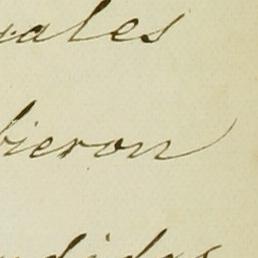 rales
bieron
didas